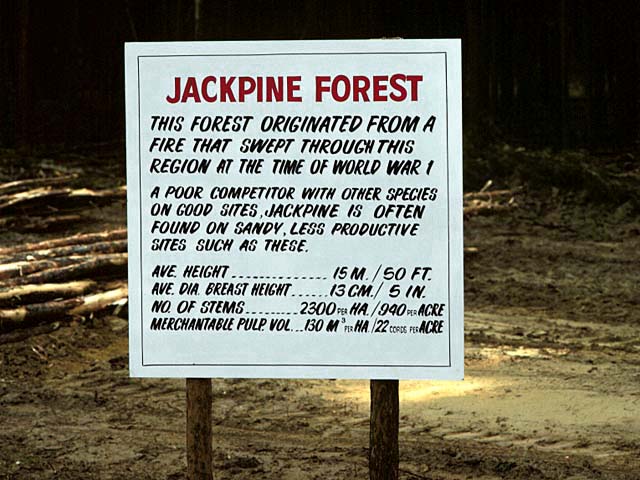 JACKPINE FOREST
THIS FOREST ORIGINATED FROM A
FIRE THAT SWEPT THROUGH THIS
REGION AT THE TIME OF WORLD WAR 1
A POOR COMPETITOR WITH OTHER SPECIES
ON GOOD SITES, JACKPINE IS OFTEN
FOUND ON SANDY, LESS PRODUCTIVE
SITES SUCH AS THESE.
AVE. HEIGHT ............ 15 M. / 50 FT.
AVE. DIA. BREAST HEIGHT ...... 13 CM. / 5 IN.
NO. OF STEMS ......... 2300 PER HA. / 940 PER ACRE
MERCHANTABLE PULP. VOL ... 130 M³ PER HA. / 22 CORDS PER ACRE